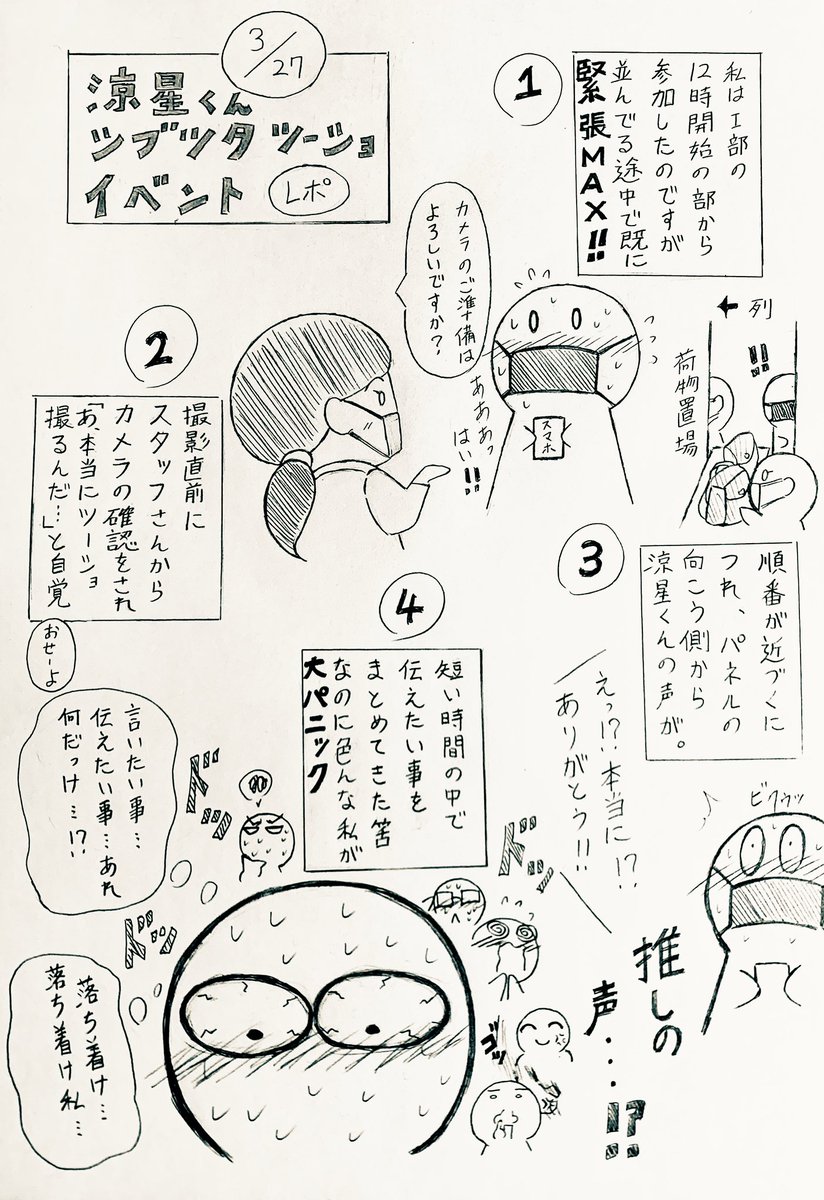 3/27
涼星くん
シブツタツーショ
イベント
レポ
1
私はI部の
12時開始の部から
参加したのですが
並んでる途中で既に
緊張MAX!!
←列
!!
荷物置場
カメラのご準備は
よろしいですか?
あああっ
はい!!
スマホ
2
撮影直前に
スタッフさんから
カメラの確認をされ
「あ、本当にツーショ
撮るんだ…」と自覚
おせーよ
3
順番が近づくに
つれ、パネルの
向こう側から
涼星くんの声が。
えっ!?本当に!?
ありがとう!!
ビクゥッ
推しの
声...!?
4
短い時間の中で
伝えたい事を
まとめてきた筈
なのに色んな私が
大パニック
言いたい事…
伝えたい事…あれ
何だっけ…!?
ドッ
ドッ
ドッ
ゴッ
落ち着け…
落ち着け私…